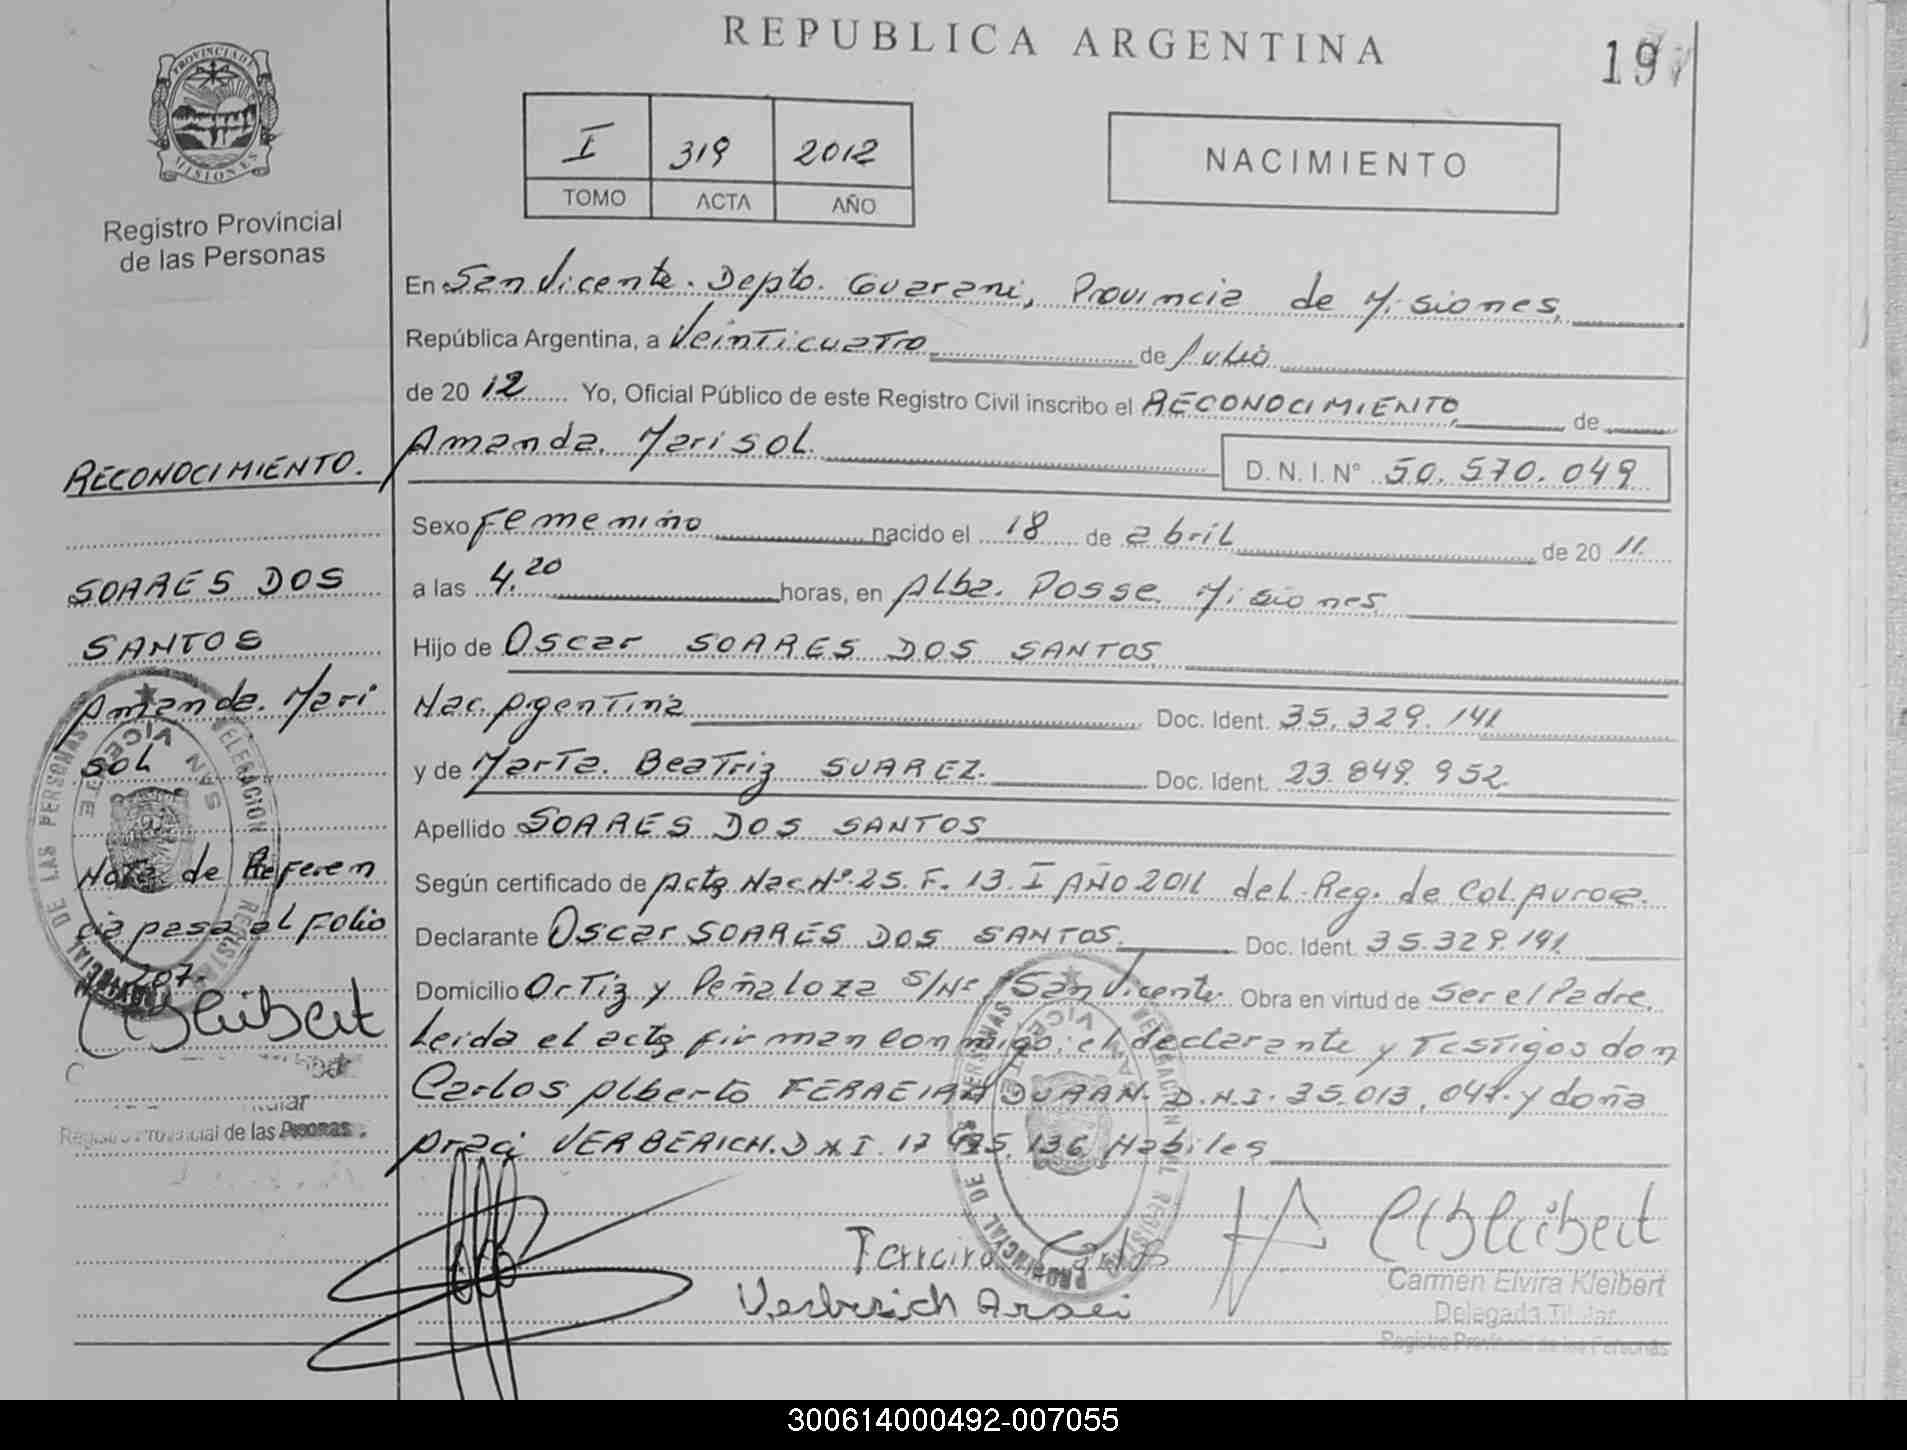 REPUBLICA ARGENTINA
19
PROVINCIA DE
MISIONES
Registro Provincial
de las Personas
I 319 2012
TOMO ACTA AÑO
NACIMIENTO
En San Vicente. Depto. Guarani, Provincia de Misiones,
República Argentina, a Veinticuatro de Julio
de 20 12 Yo, Oficial Público de este Registro Civil inscribo el RECONOCIMIENTO, de
Amanda. Marisol.
D. N. I. N° 50. 570. 049
Sexo Femenino nacido el 18 de abril de 20 11.
a las 4.20 horas, en Alba. Posse. Misiones
Hijo de Oscar SOARES DOS SANTOS
Nac. Agentina Doc. Ident. 35. 329. 141
y de Marta. Beatriz SUAREZ. Doc. Ident. 23. 849. 952
Apellido SOARES DOS SANTOS
Según certificado de Acta Nac Nº. 25. F. 13. I AÑO 2011 del Reg. de Col. Aurora.
Declarante Oscar SOARES DOS SANTOS. Doc. Ident. 35.329.141
Domicilio Ortiz y Peñaloza S/Nº San Vicente Obra en virtud de Ser el Padre.
Leida el acta firman conmigo; el declarante y Testigos don
Carlos Alberto FERREIRA DURAN. D.N.I. 35.013. 041. y doña
VERBERICH. D N I. 17 136 Habiles
RECONOCIMIENTO.
SOARES DOS
SANTOS
Amanda. Mari
SOL
Nota de Referen
cia pasa al Folio
207.
CEKleibert
Registro Provincial de las Personas
DELEGACION REGISTRO PROVINCIAL DE LAS PERSONAS
SAN VICENTE
Ferreira Carlos
Verberich
CEKleibert
Carmen Elvira Kleibert
Delegada Titular
Registro Provincial de las Personas
DELEGACION REGISTRO PROVINCIAL DE LAS PERSONAS
SAN VICENTE
300614000492-007055